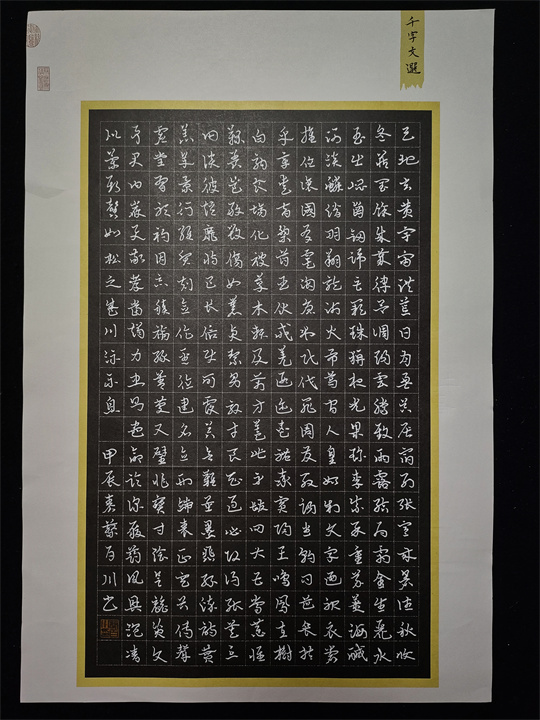 千字文選
天地玄黃宇宙洪荒日月盈昃辰宿列張寒來暑往秋收
冬藏閏餘成歲律呂調陽雲騰致雨露結為霜金生麗水
玉出崑岡劍號巨闕珠稱夜光果珍李柰菜重芥薑海鹹
河淡鱗潛羽翔龍師火帝鳥官人皇始制文字乃服衣裳
推位讓國有虞陶唐弔民伐罪周發殷湯坐朝問道垂拱
平章愛育黎首臣伏戎羌遐邇壹體率賓歸王鳴鳳在樹
白駒食場化被草木賴及萬方蓋此身髮四大五常恭惟
鞠養豈敢毀傷女慕貞潔男效才良知過必改得能莫忘
罔談彼短靡恃己長信使可覆器欲難量墨悲絲染詩讚
羔羊景行維賢剋念作聖德建名立形端表正空谷傳聲
虛堂習聽禍因惡積福緣善慶尺璧非寶寸陰是競資父
事君曰嚴與敬孝當竭力忠則盡命臨深履薄夙興溫凊
似蘭斯馨如松之盛川流不息 甲辰春蔡百川书